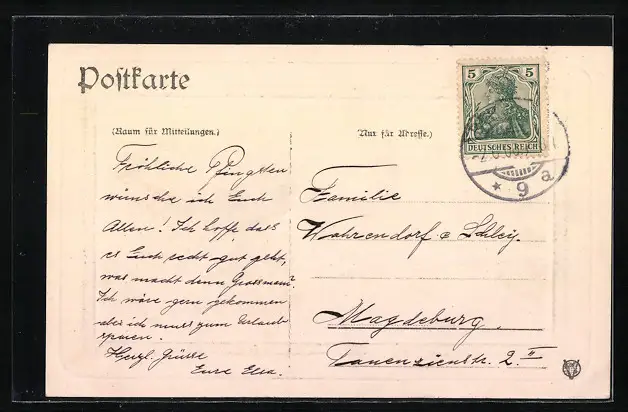 Postkarte
(Raum für Mitteilungen.)
Nur für Adresse.)
5 5
DEUTSCHES REICH
* 9 a
Fröhliche Pfingsten
wünsche ich Euch
Allen! Ich hoffe dass
es Euch recht gut geht,
was macht denn Grossmama?
Ich wäre gern gekommen
aber ich muss zum Urlaub
sparen.
Herzl. Grüsse
Eure Elsa.
Familie
Wahrendorf
Magdeburg.
Tauenzienstr. 2. II